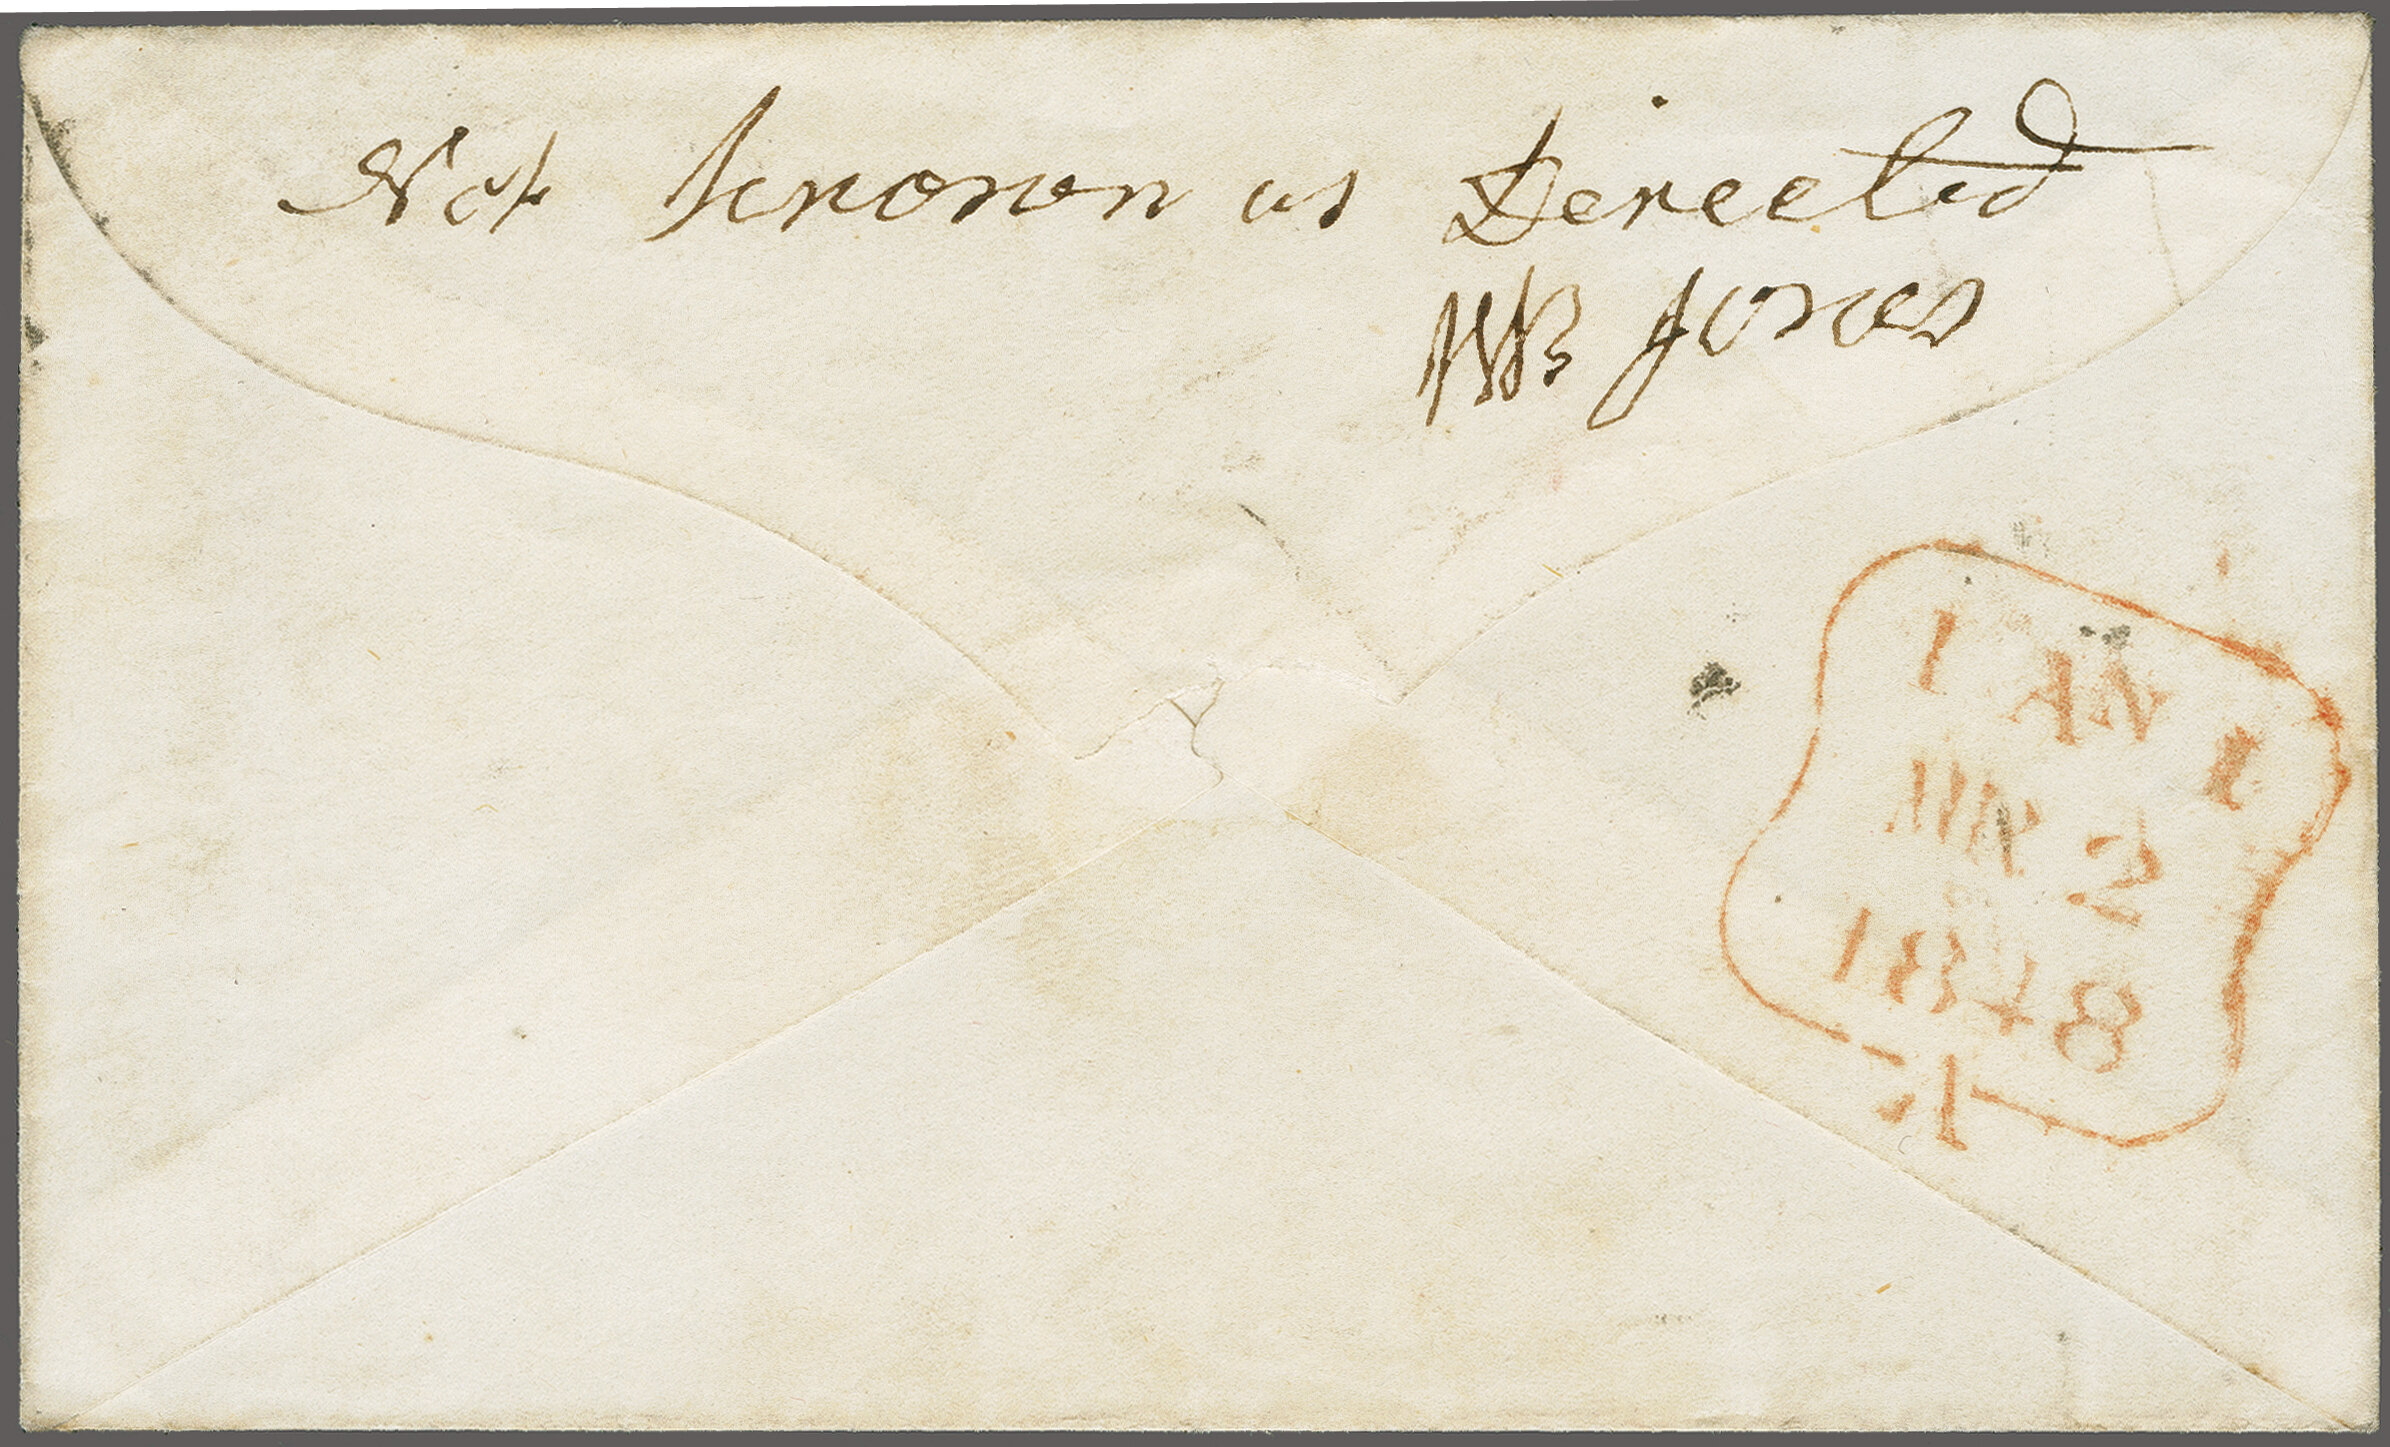 Not known as Derected
WB Jones
1 AN 1
2
1848